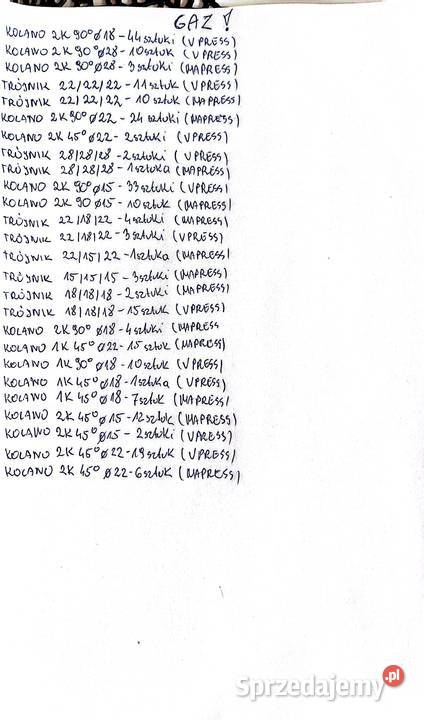 GAZ !
KOLANO 2K 90° ø18 - 44 sztuki (VPRESS)
KOLANO 2K 90° ø28 - 10 sztuk (VPRESS)
KOLANO 2K 90° ø28 - 3 sztuki (MAPRESS)
TRÓJNIK 22/22/22 - 11 sztuk (VPRESS)
TRÓJNIK 22/22/22 - 10 sztuk (MAPRESS)
KOLANO 2K 90° ø22 - 24 sztuki (MAPRESS)
KOLANO 2K 45° ø22 - 2 sztuki (VPRESS)
TRÓJNIK 28/28/28 - 2 sztuki (VPRESS)
TRÓJNIK 28/28/28 - 1 sztuka (MAPRESS)
KOLANO 2K 90° ø15 - 33 sztuki (VPRESS)
KOLANO 2K 90 ø15 - 10 sztuk (MAPRESS)
TRÓJNIK 22/18/22 - 4 sztuki (MAPRESS)
TRÓJNIK 22/18/22 - 3 sztuki (VPRESS)
TRÓJNIK 22/15/22 - 1 sztuka (MAPRESS)
TRÓJNIK 15/15/15 - 3 sztuki (MAPRESS)
TRÓJNIK 18/18/18 - 2 sztuki (MAPRESS)
TRÓJNIK 18/18/18 - 15 sztuk (VPRESS)
KOLANO 2K 90° ø18 - 4 sztuki (MAPRESS
KOLANO 1K 45° ø22 - 15 sztuk (MAPRESS)
KOLANO 1K 90° ø18 - 10 sztuk (VPRESS)
KOLANO 1K 45° ø18 - 1 sztuka (VPRESS)
KOLANO 1K 45° ø18 - 7 sztuk (MAPRESS)
KOLANO 2K 45° ø15 - 12 sztuk (MAPRESS)
KOLANO 2K 45° ø15 - 2 sztuki (VPRESS)
KOLANO 2K 45° ø22 - 19 sztuk (VPRESS)
KOLANO 2K 45° ø22 - 6 sztuk (MAPRESS)
Sprzedajemy.pl